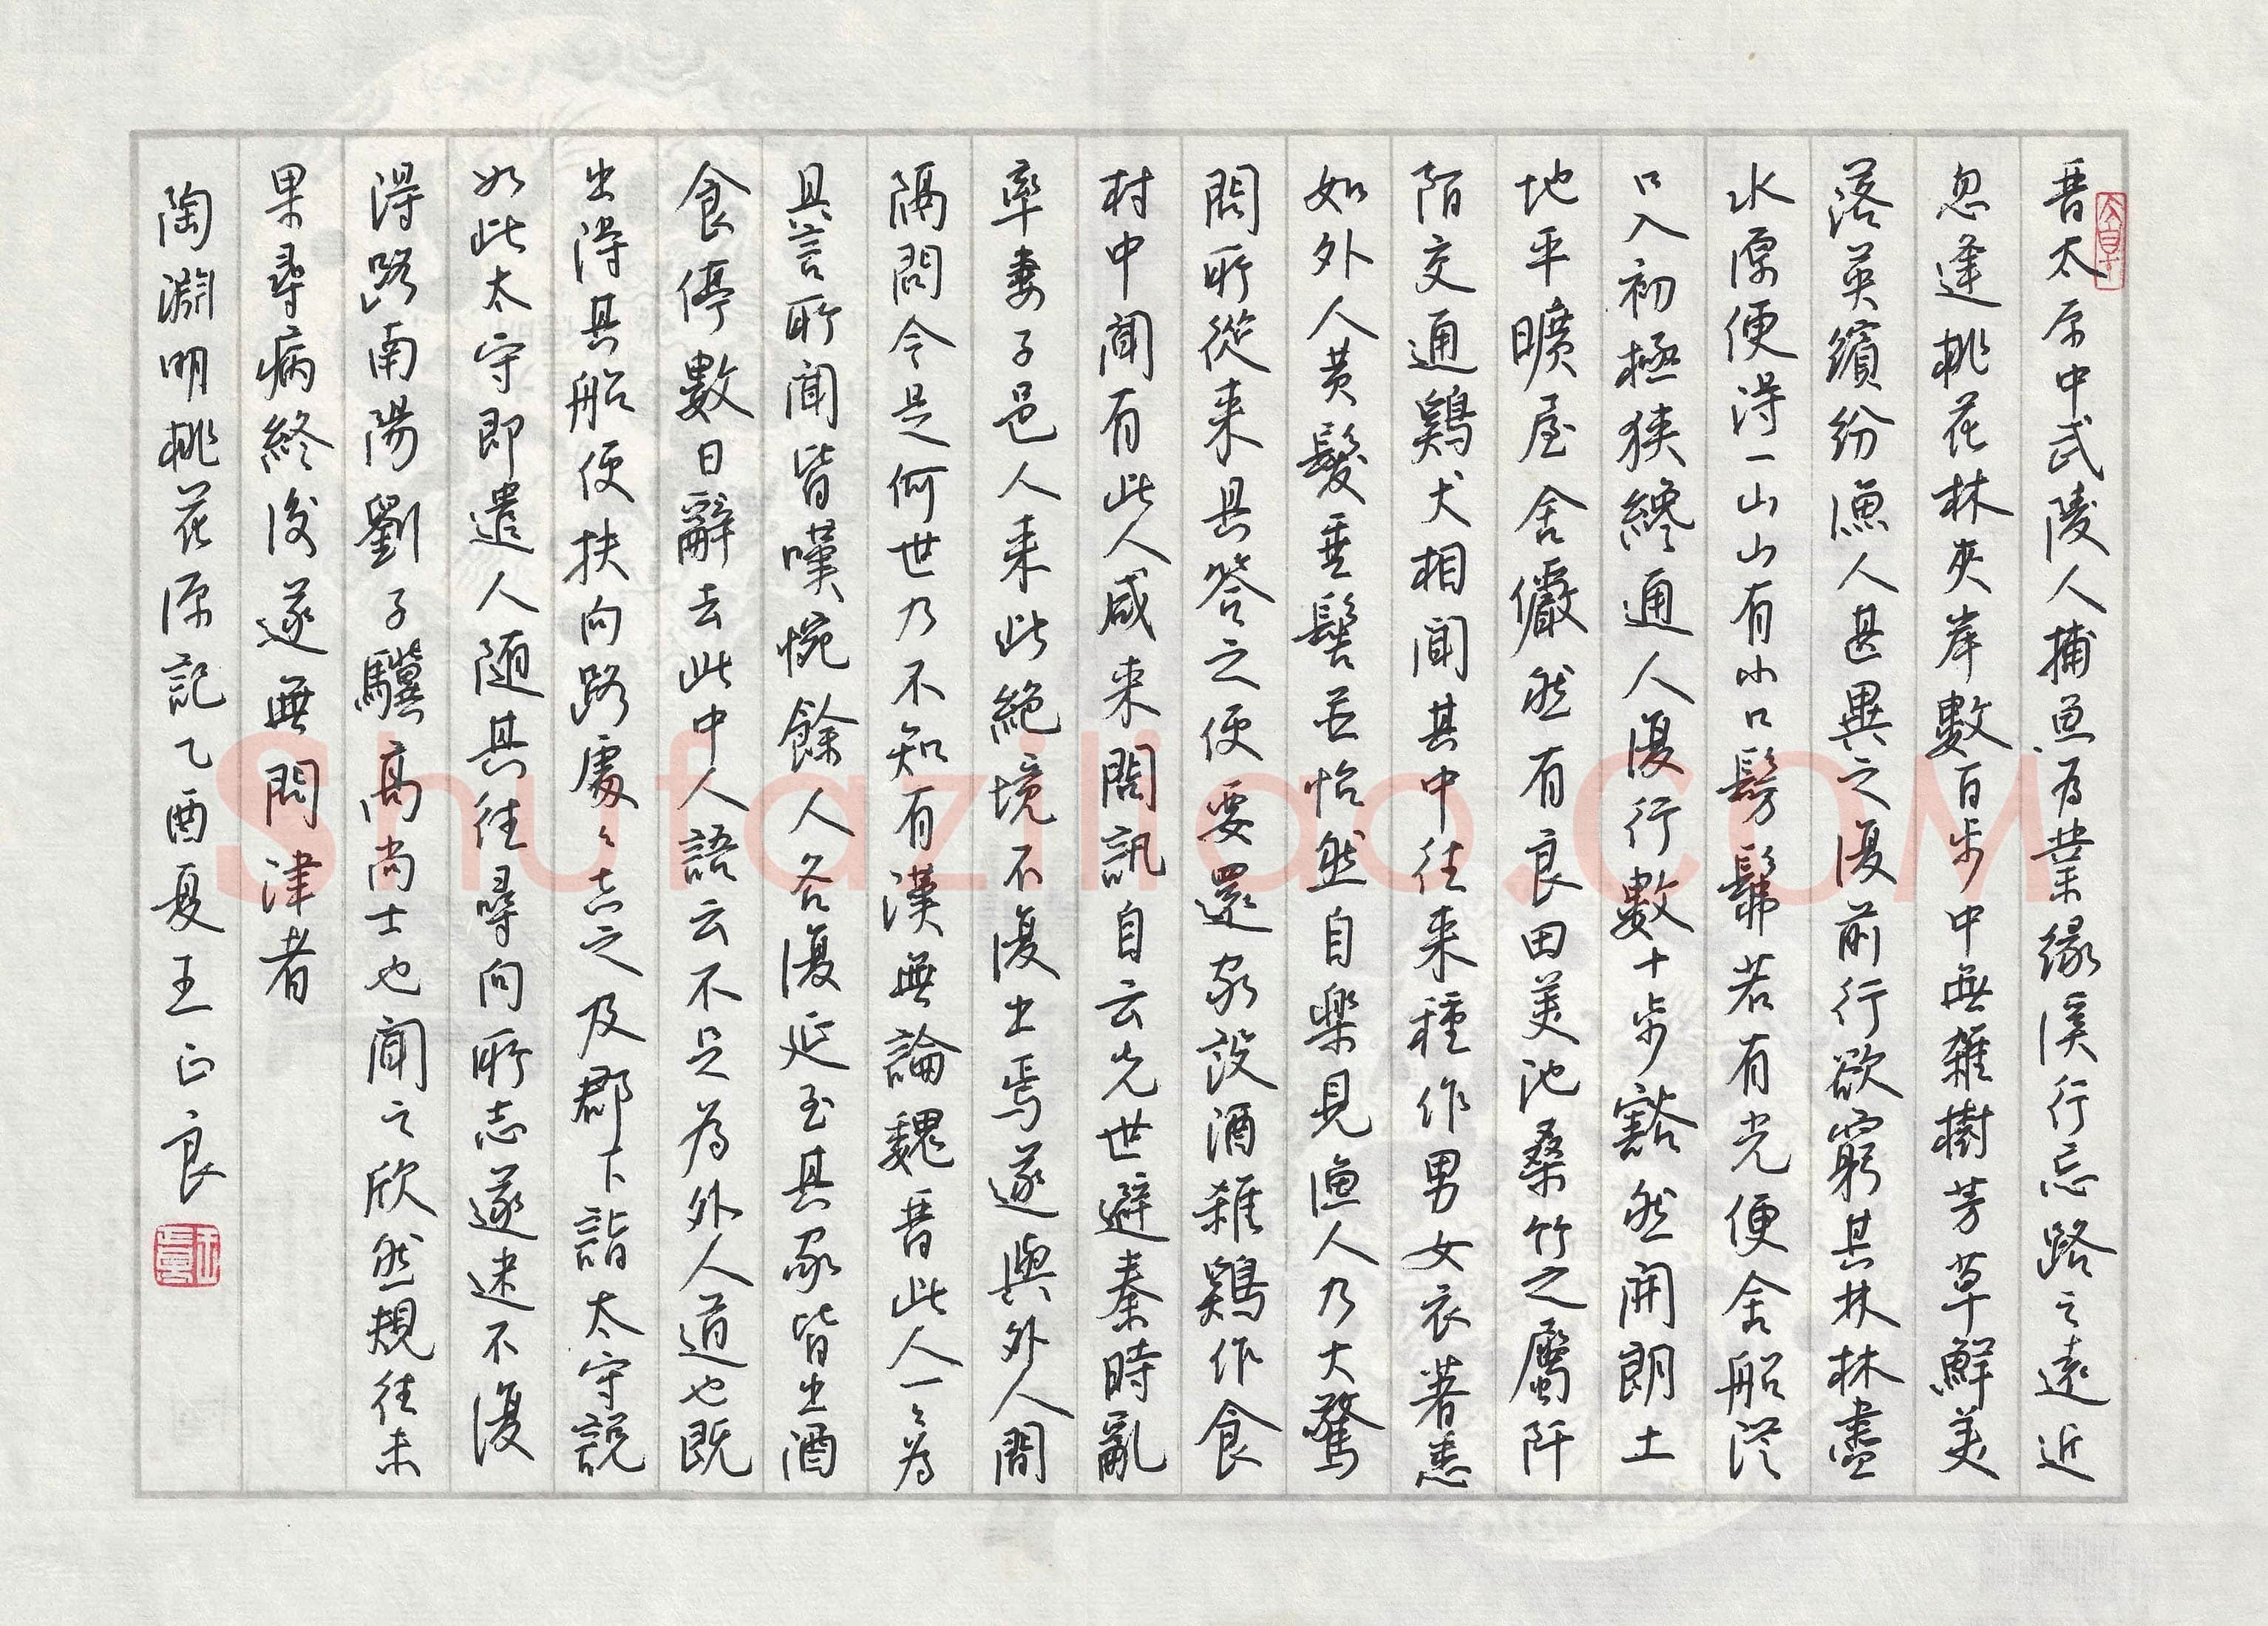 晉太原中武陵人捕魚為業緣溪行忘路之遠近
忽逢桃花林夾岸數百步中無雜樹芳草鮮美
落英繽紛漁人甚異之復前行欲窮其林林盡
水源便得一山山有小口髣髴若有光便舍船從
口入初極狹纔通人復行數十步豁然開朗土
地平曠屋舍儼然有良田美池桑竹之屬阡
陌交通鷄犬相聞其中往来種作男女衣著悉
如外人黃髮垂髫並怡然自樂見漁人乃大驚
問所從来具答之便要還家設酒雜鷄作食
村中聞有此人咸来問訊自云先世避秦時亂
率妻子邑人来此絕境不復出焉遂與外人間
隔問今是何世乃不知有漢無論魏晉此人一々為
具言所聞皆嘆惋餘人各復延至其家皆出酒
食停數日辭去此中人語云不足為外人道也既
出得其船便扶向路處々志之及郡下詣太守說
如此太守即遣人隨其往尋向所志遂迷不復
得路南陽劉子驥高尚士也聞之欣然規往未
果尋病終後遂無問津者
陶淵明桃花源記乙酉夏王正良
Shufaziliao.COM